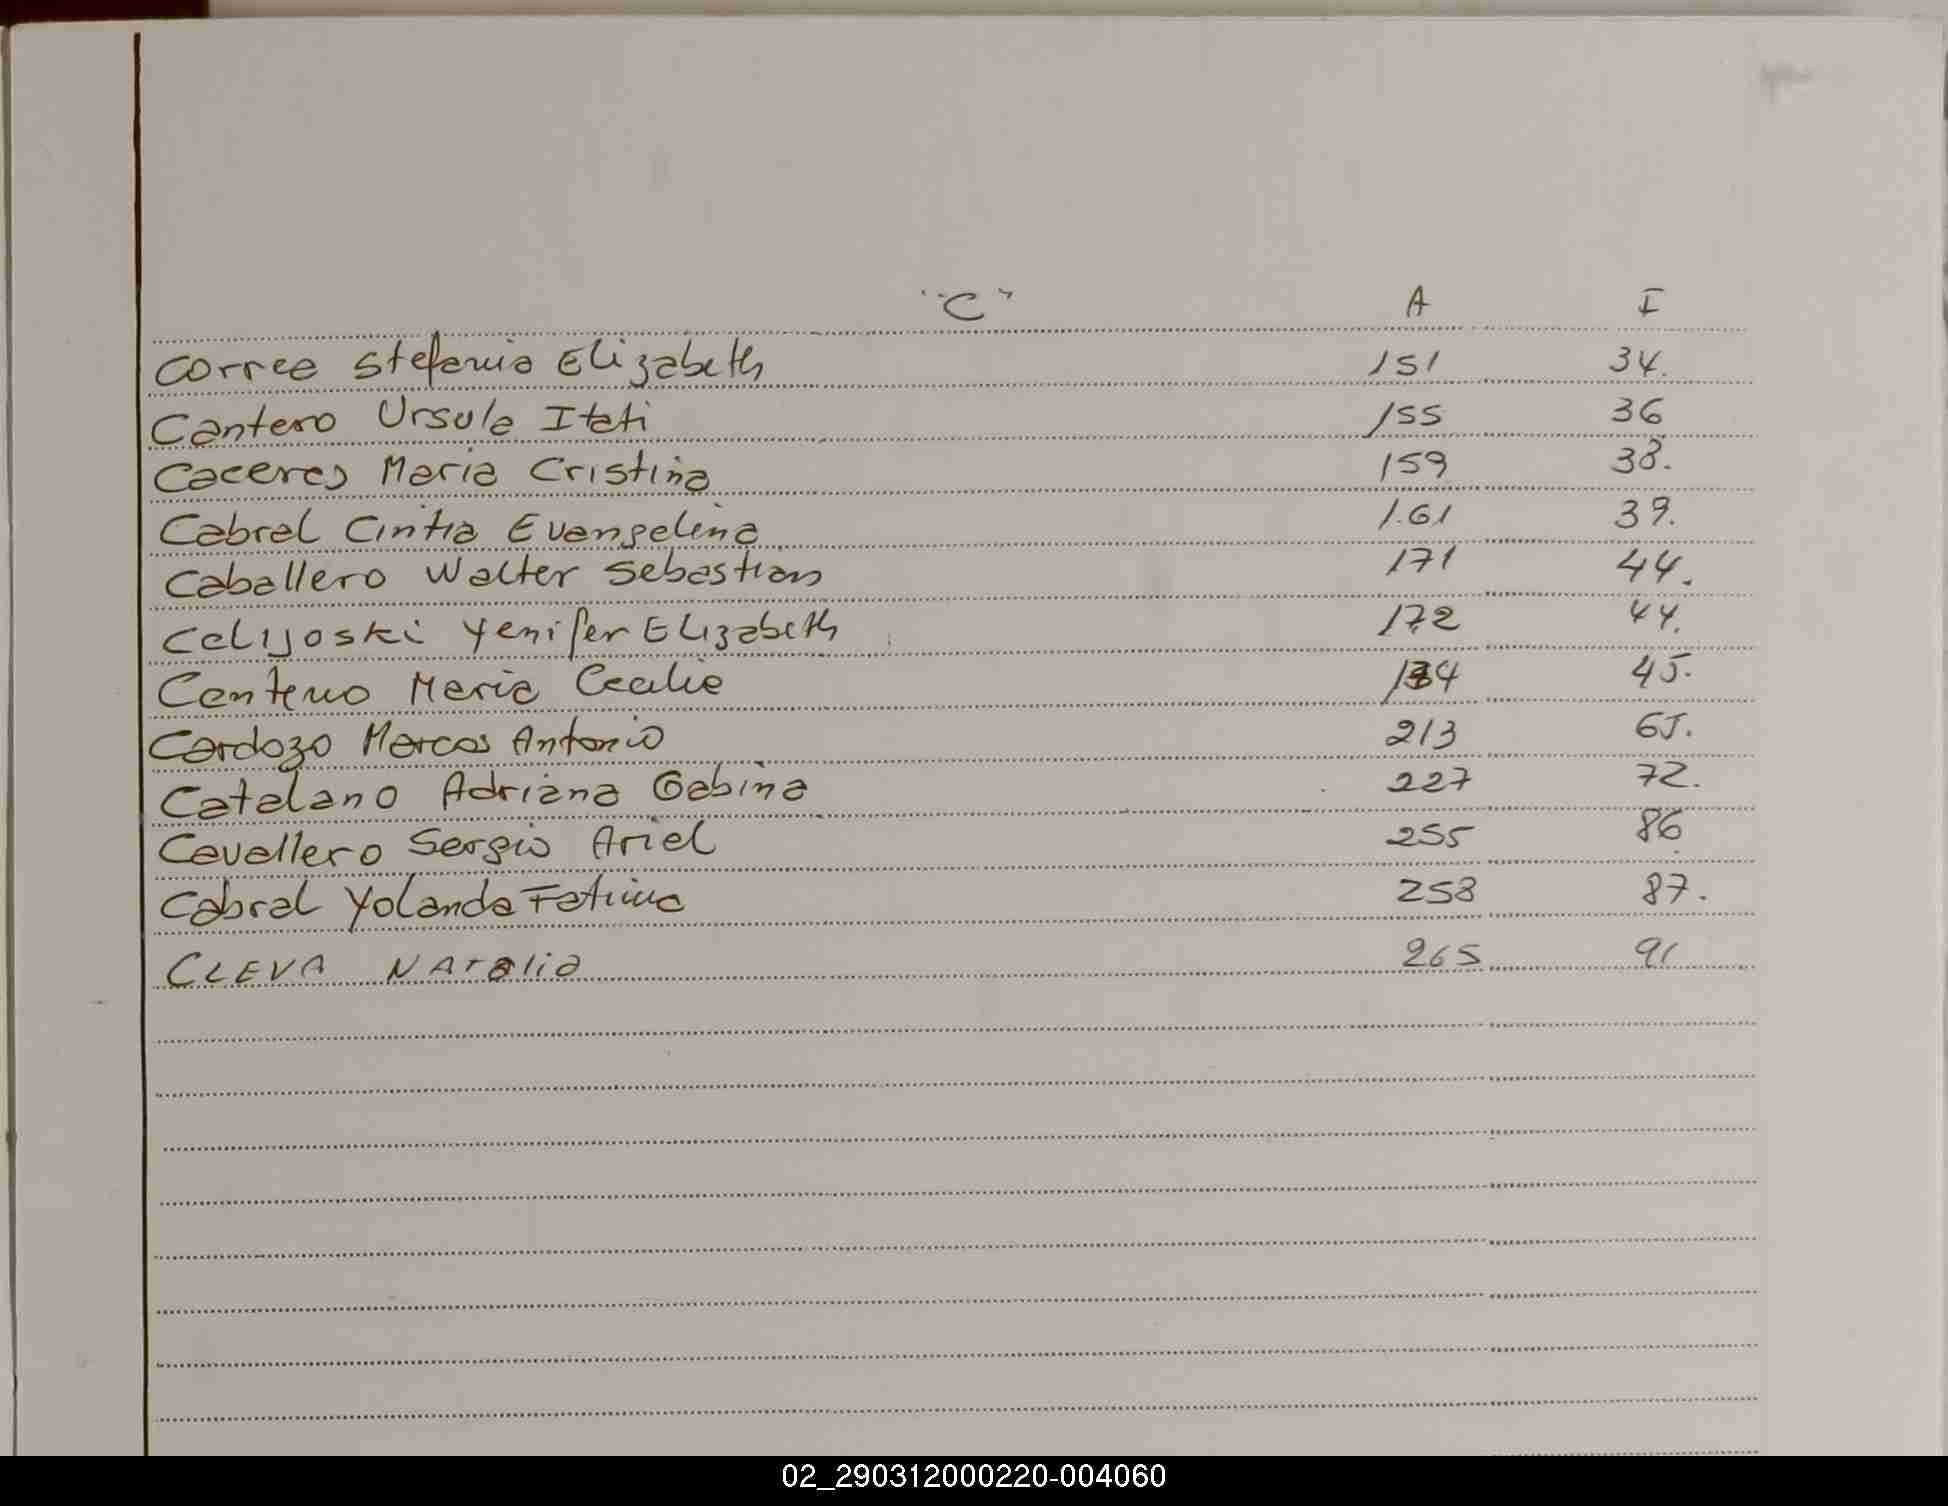 "C" A F
Correa Stefania Elizabeth 151 34.
Cantero Ursula Itati 155 36
Caceres Maria Cristina 159 38.
Cabral Cintia Evangelina 161 39.
Caballero Walter Sebastian 171 44.
Celijoski Yenifer Elizabeth 172 44.
Centeno Maria Cecilia 45.
Cardozo Marcos Antonio 213 65.
Catalano Adriana Gabina 227 72.
Cavallero Sergio Ariel 255 86
Cabral Yolanda Fatima 258 87.
CLEVA NATalia 265 91
02_290312000220-004060